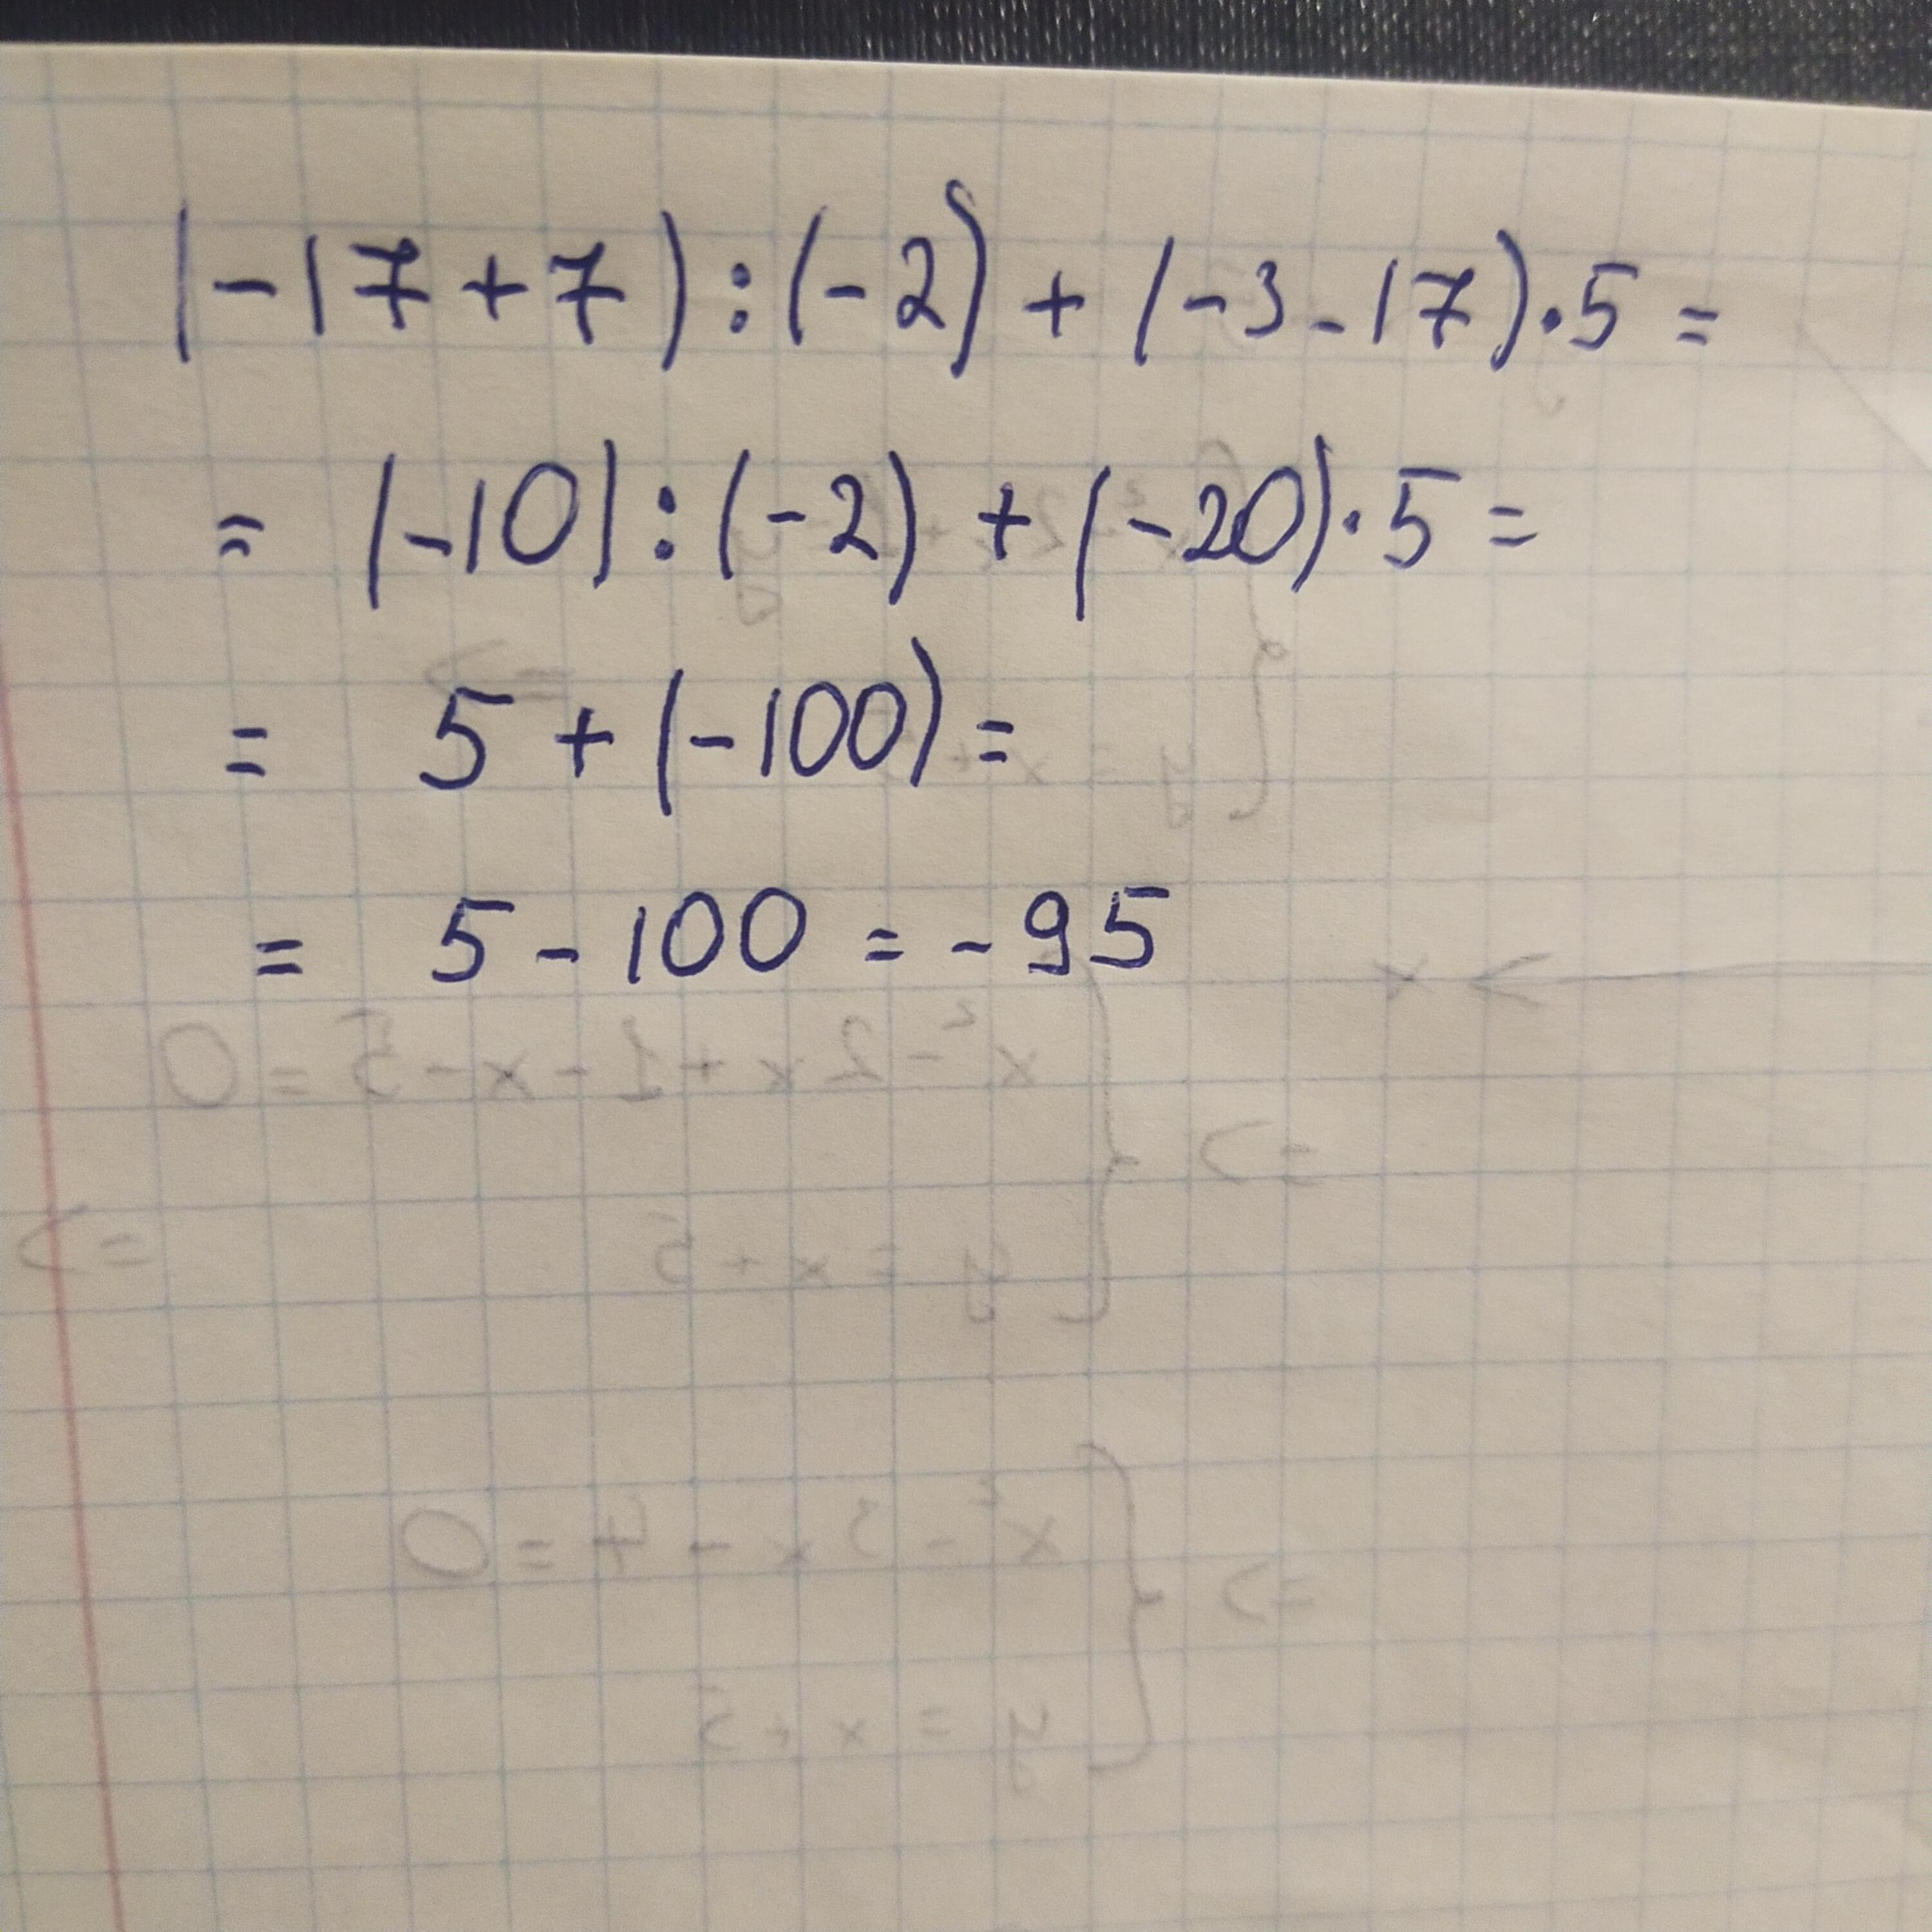 (-17+7):(-2)+(-3-17)·5=
=(-10):(-2)+(-20)·5=
=5+(-100)=
=5-100=-95